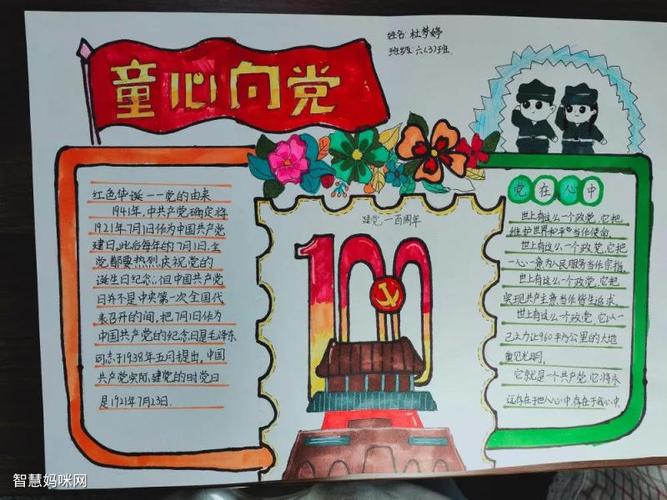 姓名:杜梦婷
班级:六(3)班
童心向党
红色华诞——党的由来
1941年,中共产党确定将
1921年7月1日作为中国共产党
建日,此后每年的7月1日,全
党都要热烈庆祝党的
诞生日纪念。但中国共产党
日并不是中央第一次全国代
表召开的间,把7月1日作为
中国共产党的纪念日是毛泽东
同志于1938年五司提出,中国
共产党实际建党的时党日
是1921年7月23日.
建党一百周年
100
党在心中
世上有这么一个政党,它把
维护世界和平当任使命.
世上有这么一个政党,它把
一心一意为人民服务当任宗指.
世上有这么一个政党,它把
实现共产主意当任皆生追求.
世上有这么一个政党,它以一
己之力让960平方公里的大地
重见光明.
它就是一个共产党,它将永
远存在于世人心中,存在于我心中
智慧妈咪网